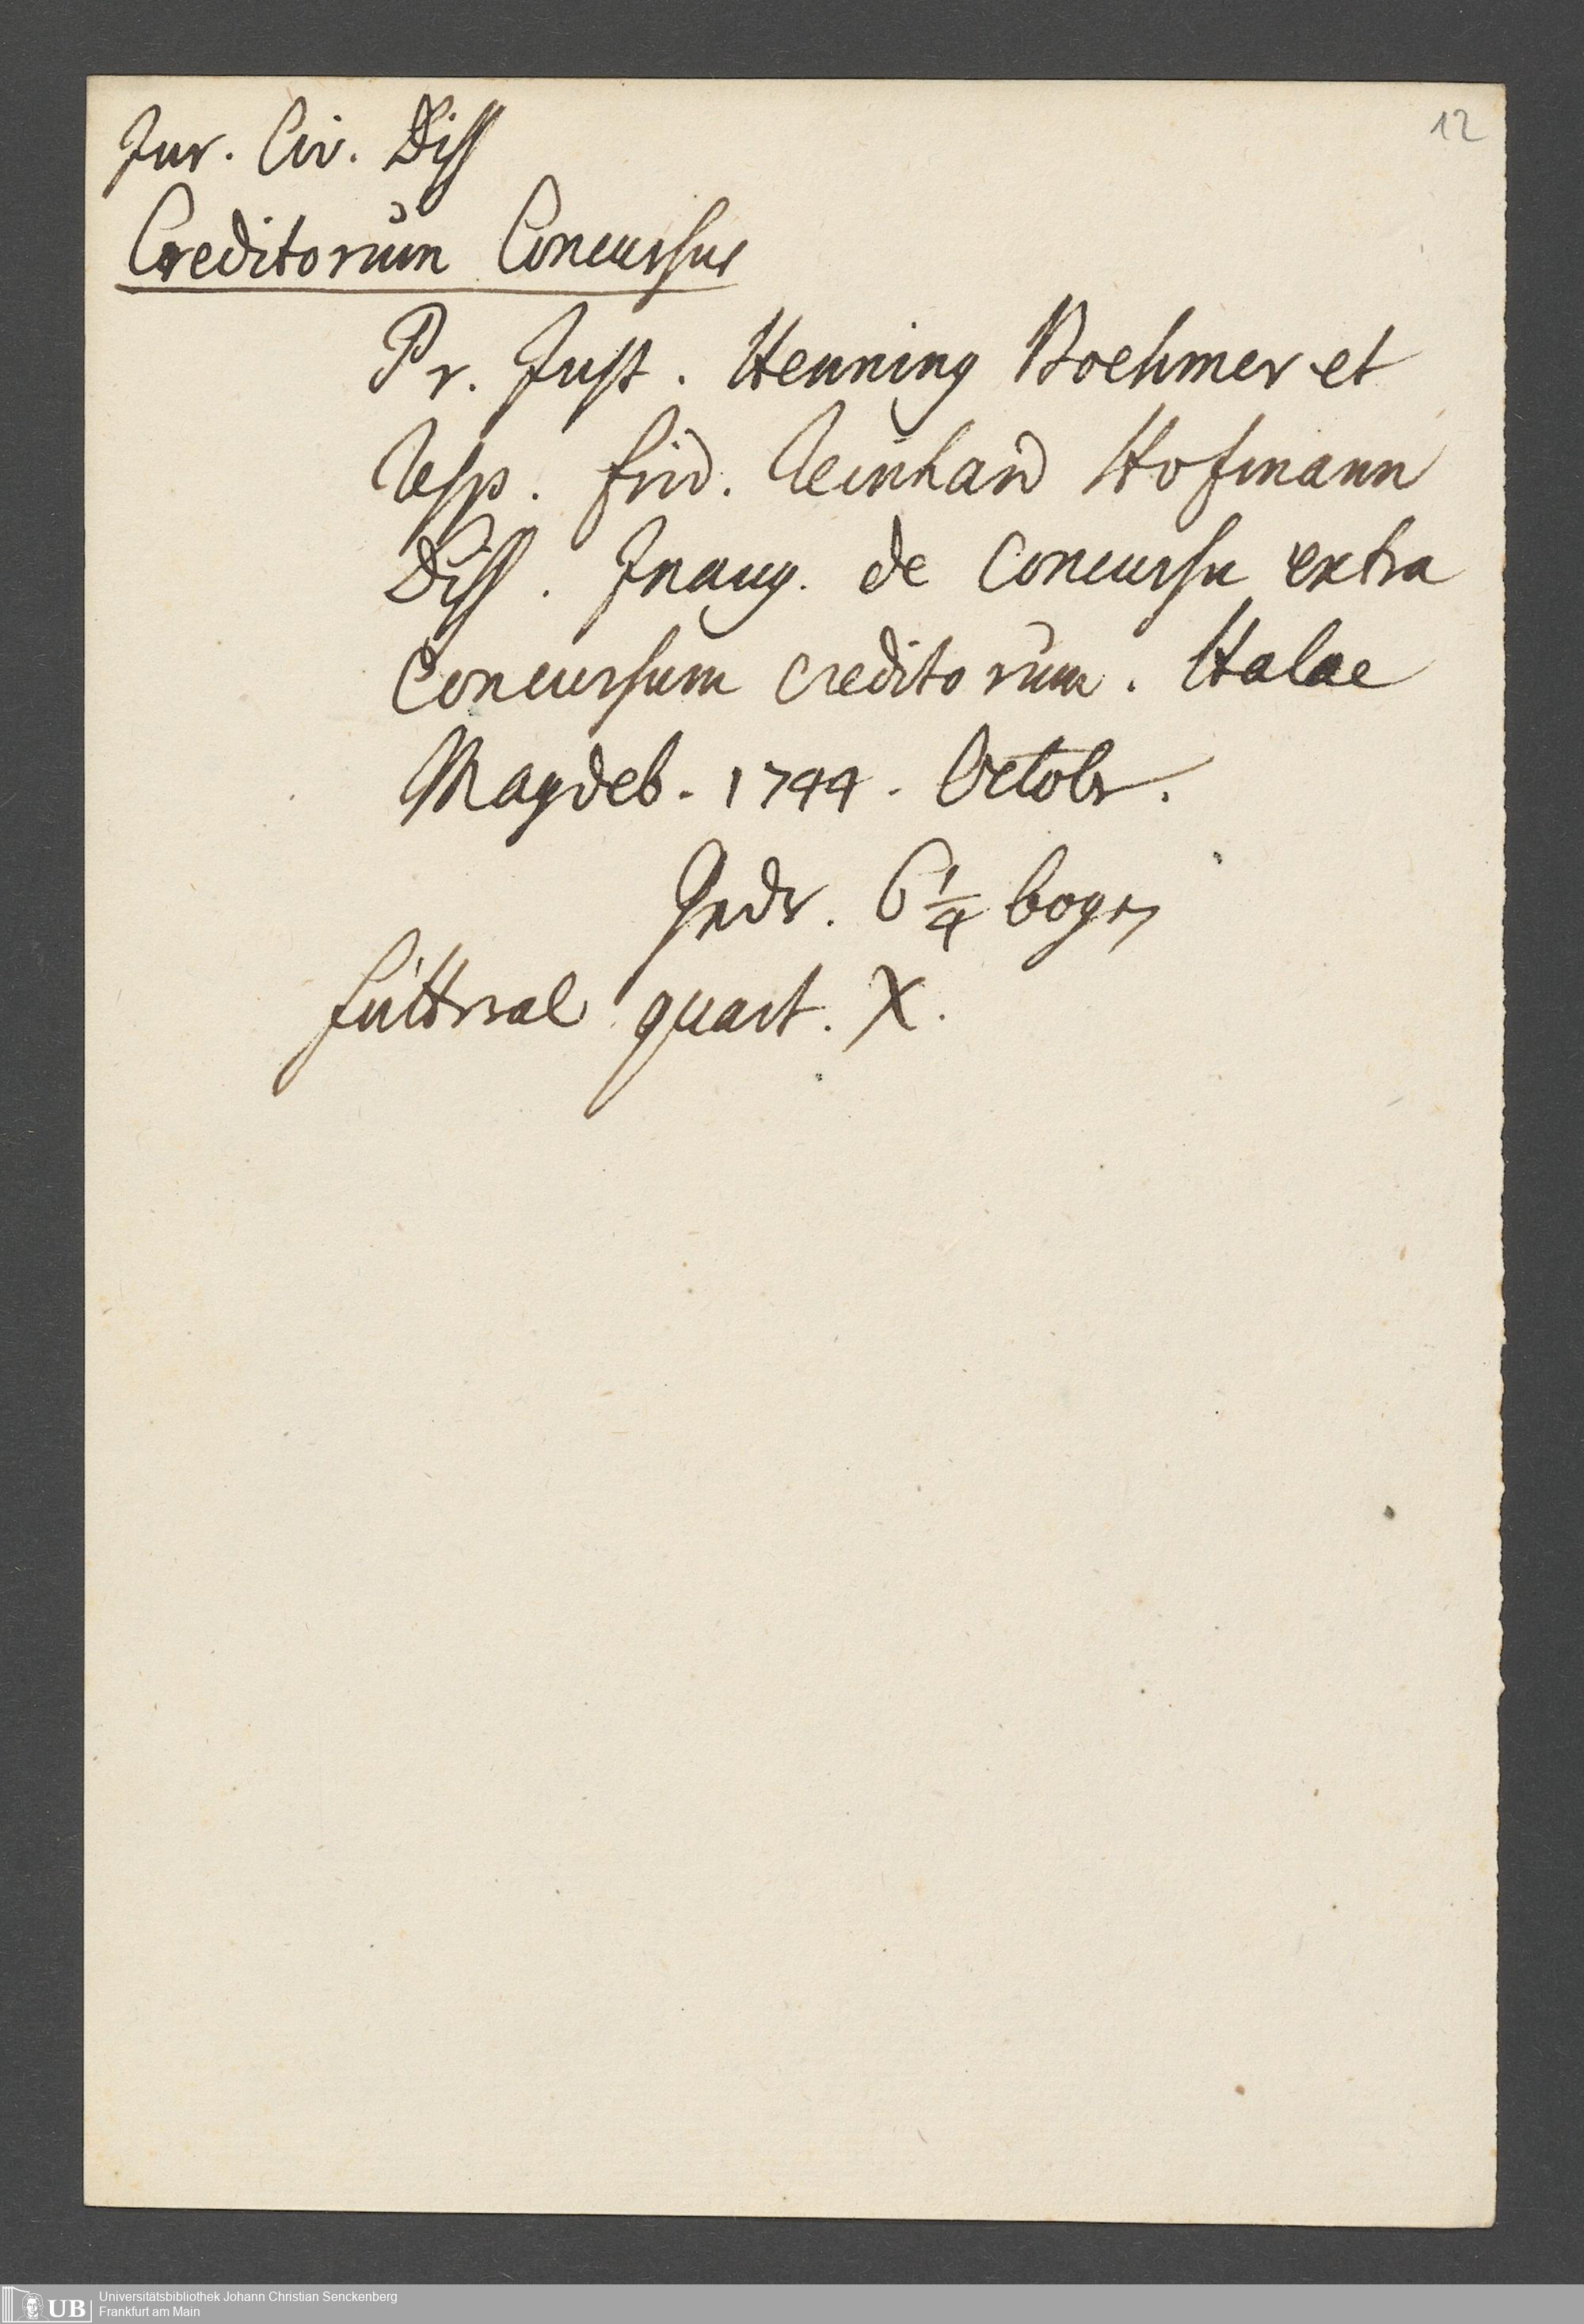 12
Jur. Civ. Diss
Creditorum Concursus
Pr. Just. Henning Boehmer et
Resp. Frid. Reinhard Hofmann
Diss. Inaug. de Concursu extra
Concursum creditorum. Halae
Magdeb. 1744. Octobr.
Gedr. 6 1/4 bogen
Futteral quart. X.
UB Universitätsbibliothek Johann Christian Senckenberg
Frankfurt am Main